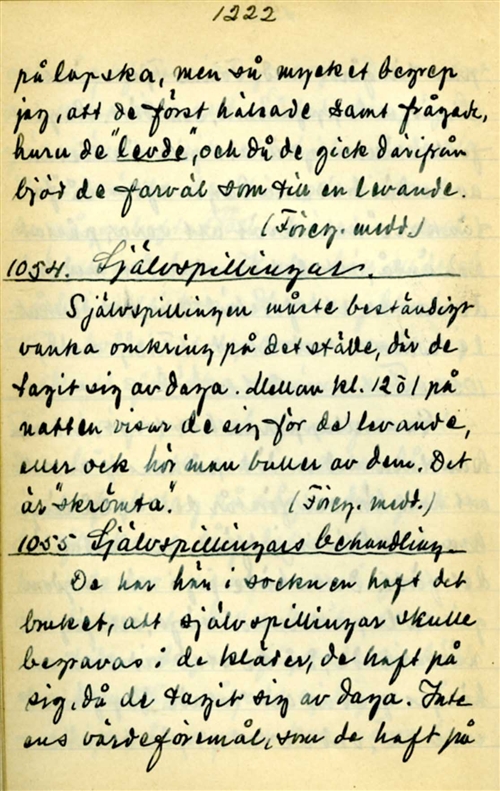 1222
på lapska, men så mycket begrep
jag, att de först hälsade samt frågade,
huru de "levde", och då de gick därifrån
bjöd de farväl som till en levande.
(Föreg. medd.)
1054. Självspillingar.
Självspillingen måste beständigt
vanka omkring på det ställe, där de
tagit sig av daga. Mellan kl. 12 ö 1 på
natten visar de sig för de levande,
eller ock hör man buller av dem. Det
är "skrömta". (Föreg. medd.)
1055 Självspillingars behandling.
De har här i socknen haft det
bruket, att självspillingar skulle
begravas i de kläder, de haft på
sig, då de tagit sig av daga. Inte
ens värdeföremål, som de haft på